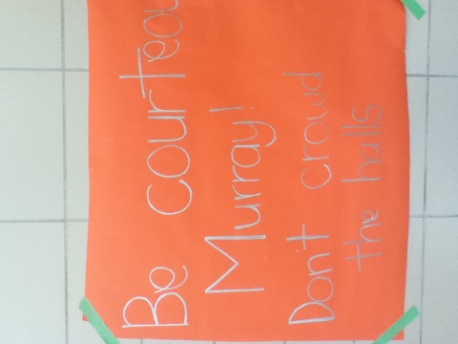 Be courteou
Murray!
Don't crowd
the halls